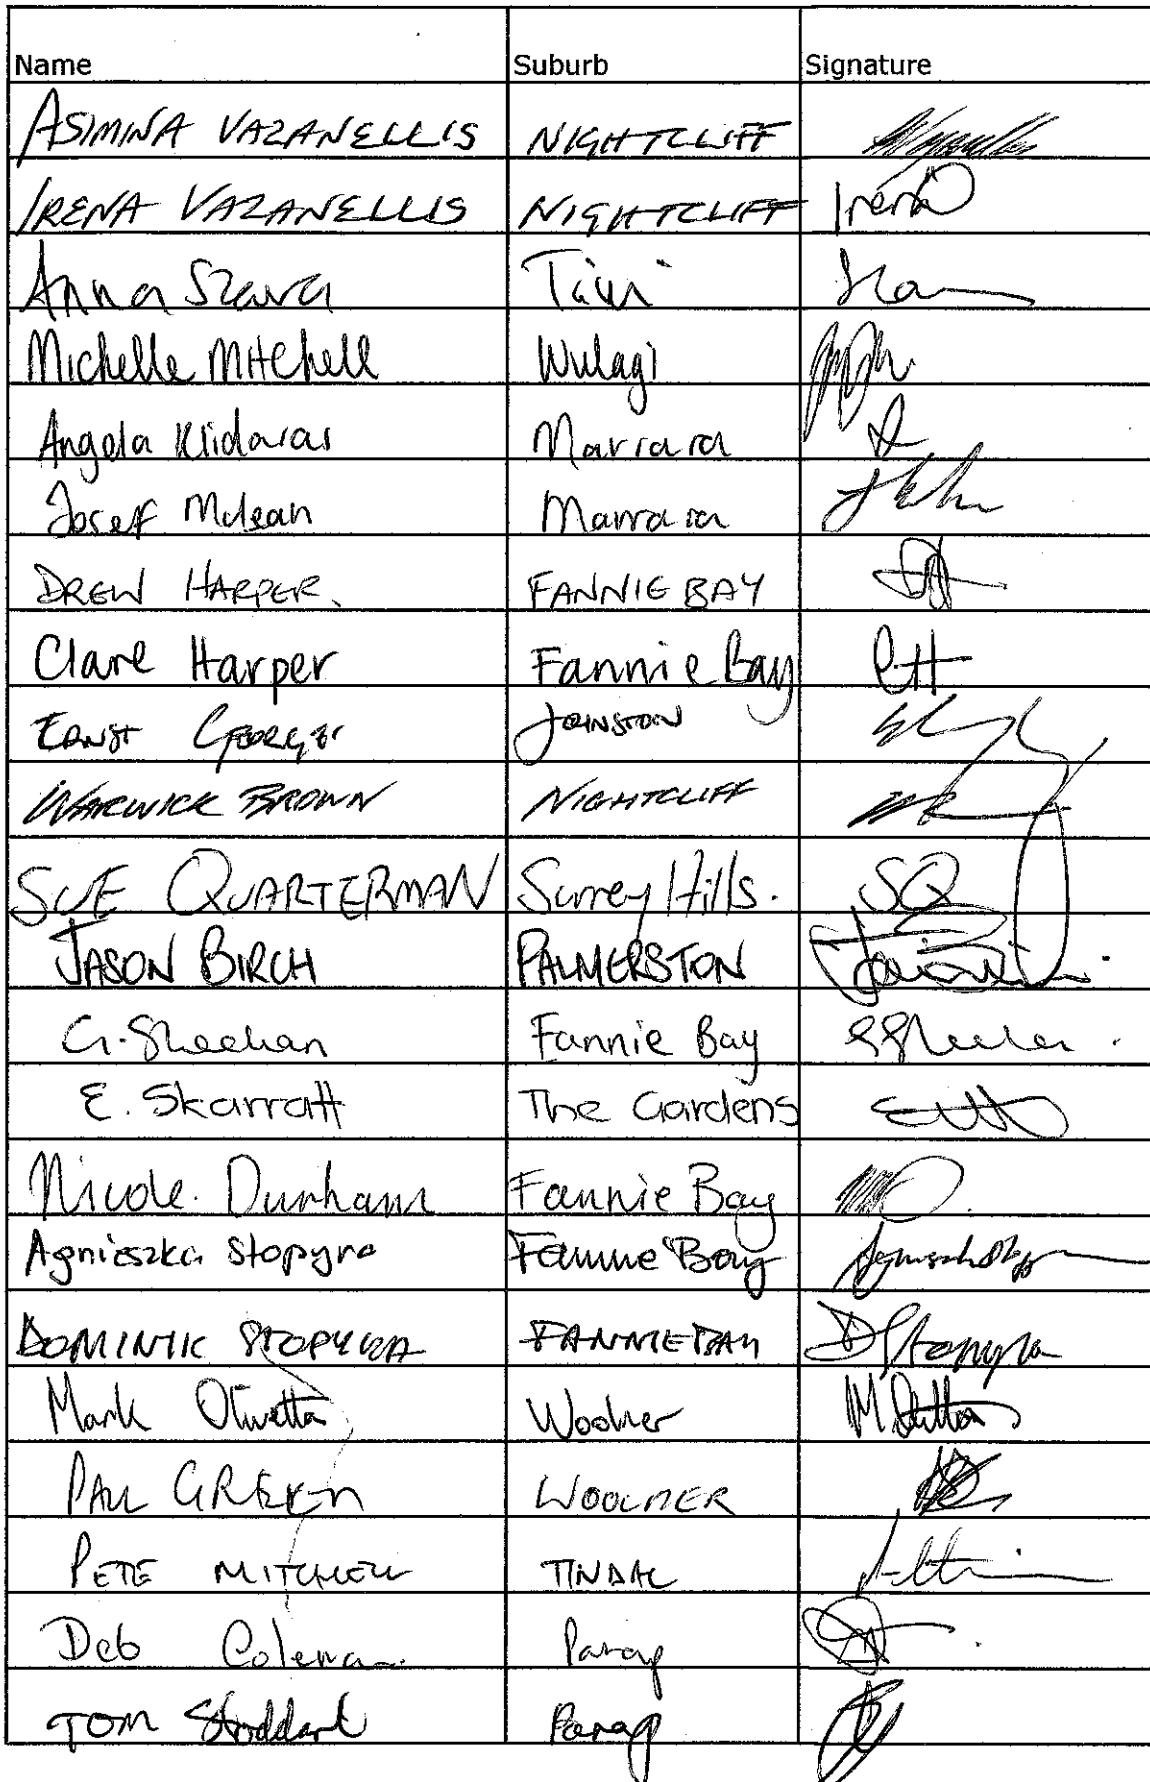 Name Suburb Signature
ASIMINA VAZANELLIS NIGHTCLIFF
IRENA VAZANELLIS NIGHTCLIFF Irena
Anna Szava Tiwi
Michelle Mitchell Wulagi
Angela Klidaras Marrara
Josef Mclean Marrara
DREW HARPER. FANNIE BAY
Clare Harper Fannie Bay CH
ERNST GEORGE JOHNSTON
WARWICK BROWN NIGHTCLIFF
SUE QUARTERMAN Surrey Hills. SQ
JASON BIRCH PALMERSTON
G. Sheehan Fannie Bay
E. Skarratt The Gardens
Nicole Durham Fannie Bay
Agnieszka Stopyra Fannie Bay
DOMINIK STOPYRA FANNIE BAY DStopyra
Mark Olivetta Woolner
PAUL GREEN WOOLNER
PETE MITCHELL TINDAL
Deb Coleman Parap
TOM Stoddart Parap